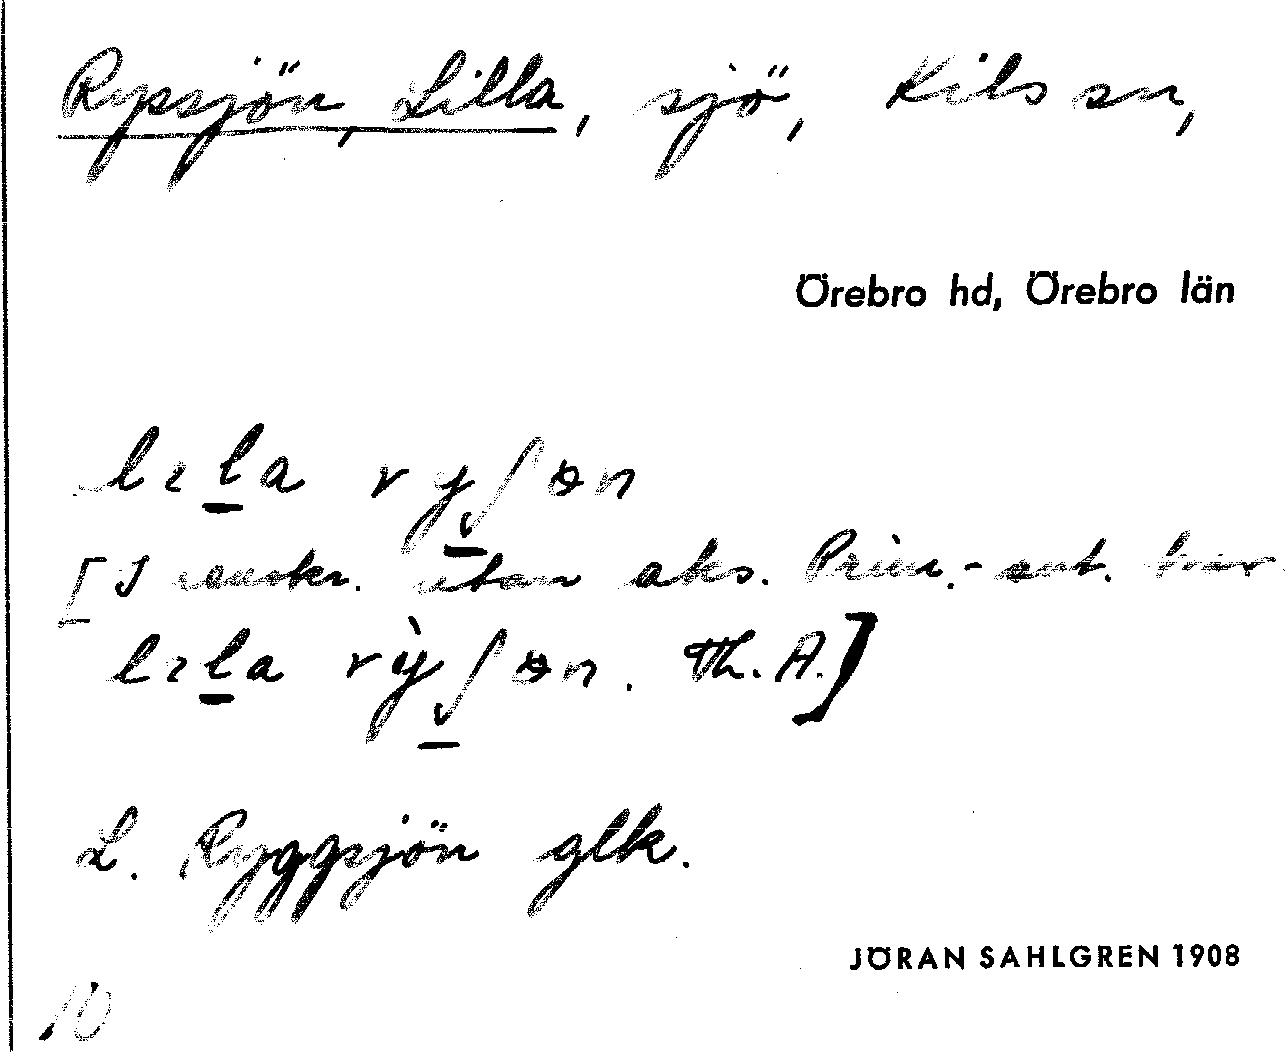 Rypsjön, Lilla, sjö, Kils sn,
Örebro hd, Örebro län
lɩla ryʃøn
[I utan aks. Prim.-ant. har
lɩla rỳʃøn. Th. A.]
L. Ryggsjön glk.
JÖRAN SAHLGREN 1908
10